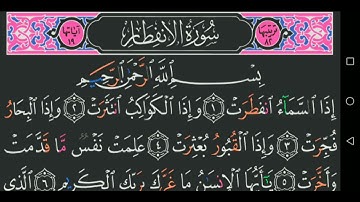 ترتيبها ٨٢ سُورَةُ الِانفِطَارِ آياتها ١٩
بِسْمِ اللَّهِ الرَّحْمَٰنِ الرَّحِيمِ
إِذَا السَّمَاءُ انفَطَرَتْ ١ وَإِذَا الْكَوَاكِبُ انتَثَرَتْ ٢ وَإِذَا الْبِحَارُ
فُجِّرَتْ ٣ وَإِذَا الْقُبُورُ بُعْثِرَتْ ٤ عَلِمَتْ نَفْسٌ مَّا قَدَّمَتْ
وَأَخَّرَتْ ٥ يَٰأَيُّهَا الْإِنسَٰنُ مَا غَرَّكَ بِرَبِّكَ الْكَرِيمِ ٦ الَّذِي